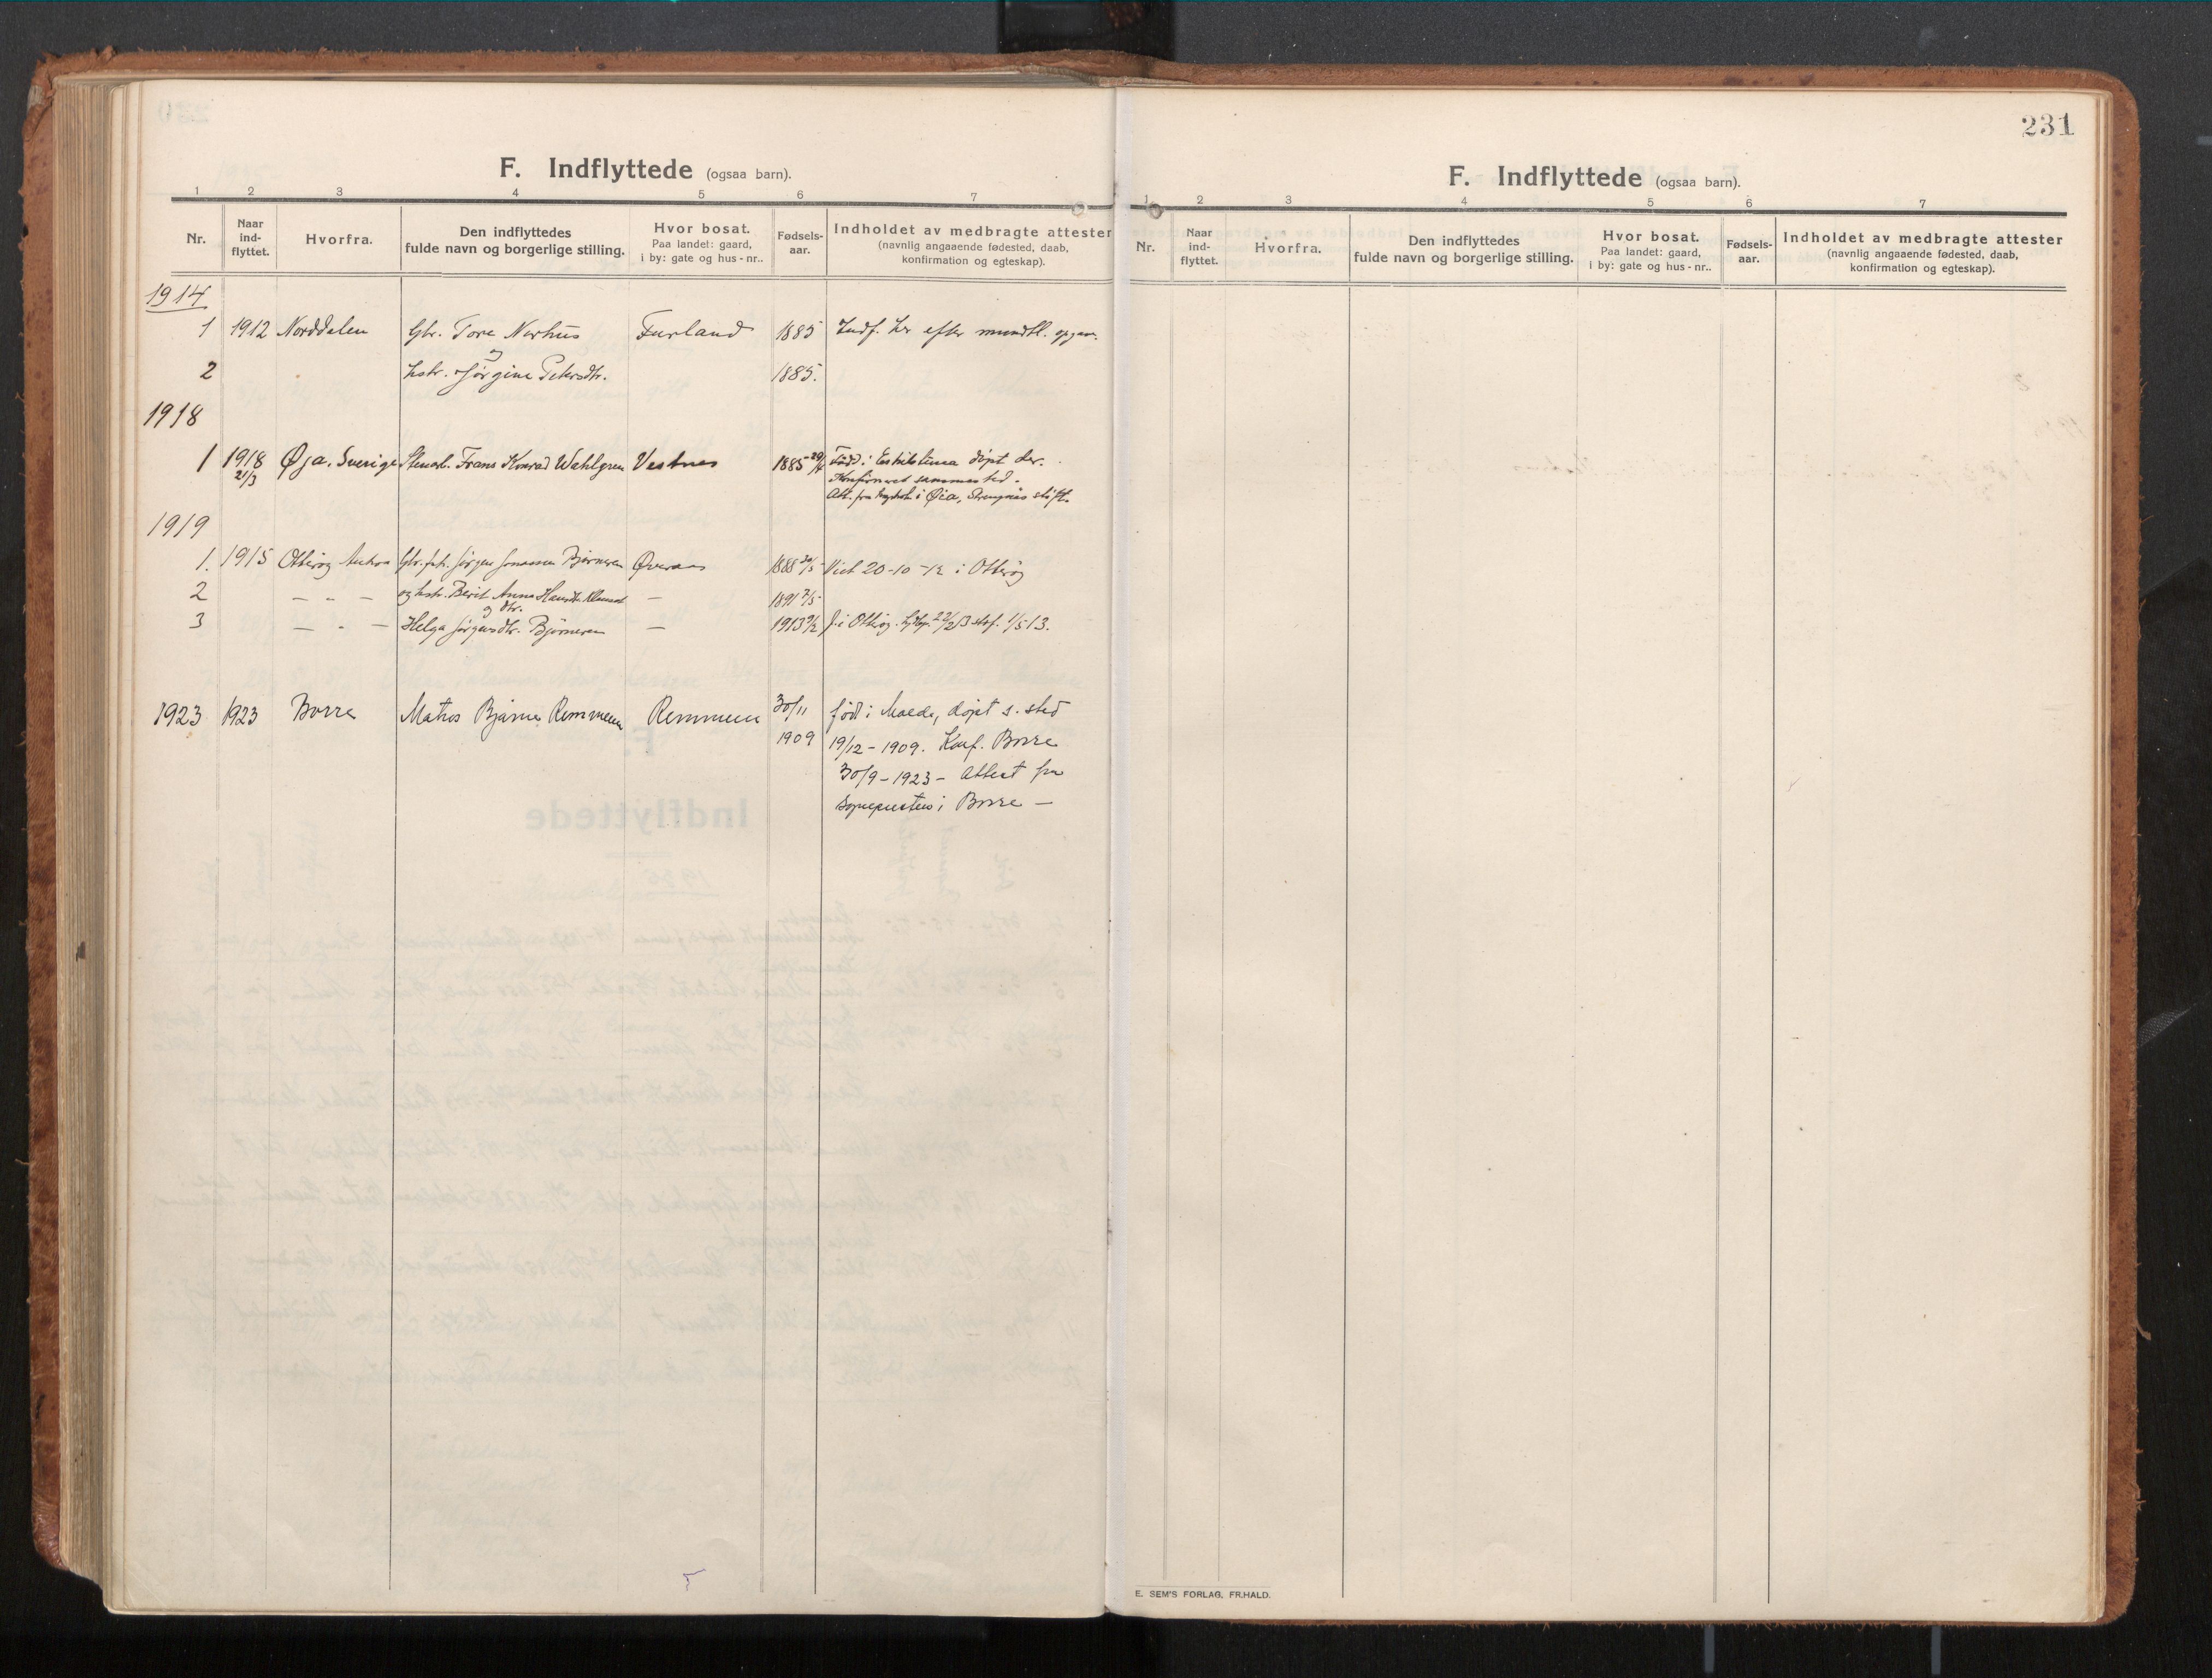 F. Indflyttede (ogsaa barn).
1 2 3 4 5 6 7
Nr. | Naar ind-flyttet. | Hvorfra. | Den indflyttedes fulde navn og borgerlige stilling. | Hvor bosat. Paa landet: gaard, i by: gate og hus-nr.. | Fødsels-aar. | Indholdet av medbragte attester (navnlig angaaende fødested, daab, konfirmation og egteskap).
1914
1 1912 Norddalen Gbr. Tore Nerhus Furland 1885 Indf. her efter mundtl. opgav.
og
2 hstr. Jørgine Petersdtr. 1885.
1918
1 1918 Øja. Sverige Stenarb. Frans Konrad Wahlgren Vestnes 1885
21/3 Född i Eskilstuna døpt der.
Konfirmeret sammested.
Att. fra i Øia, Strengnäs stift.
1919
1. 1915 Otterøy Gbr. Jørgen Jonassen Bjørneren Øveraas 1888 30/5 Viet 20-10-12 i Otterøy
2 — " — og hstr. Berit Anna Hansdtr. — 1891 7/5
og dtr.
3 — " — Helga Jørgensdtr. Bjørneren — 1913 f. i Otterøy. staf. 1/5 13.
1923 1923 Borre Matros Bjarne Remmem Remmem 30/11 født i Molde, døpt s. sted
1909 19/12-1909. Konf. Borre
30/9-1923- Attest fra
sognepresten i Borre —
231
F. Indflyttede (ogsaa barn).
1 2 3 4 5 6 7
Nr. | Naar ind-flyttet. | Hvorfra. | Den indflyttedes fulde navn og borgerlige stilling. | Hvor bosat. Paa landet: gaard, i by: gate og hus-nr.. | Fødsels-aar. | Indholdet av medbragte attester (navnlig angaaende fødested, daab, konfirmation og egteskap).
E. SEM'S FORLAG, FR.HALD.